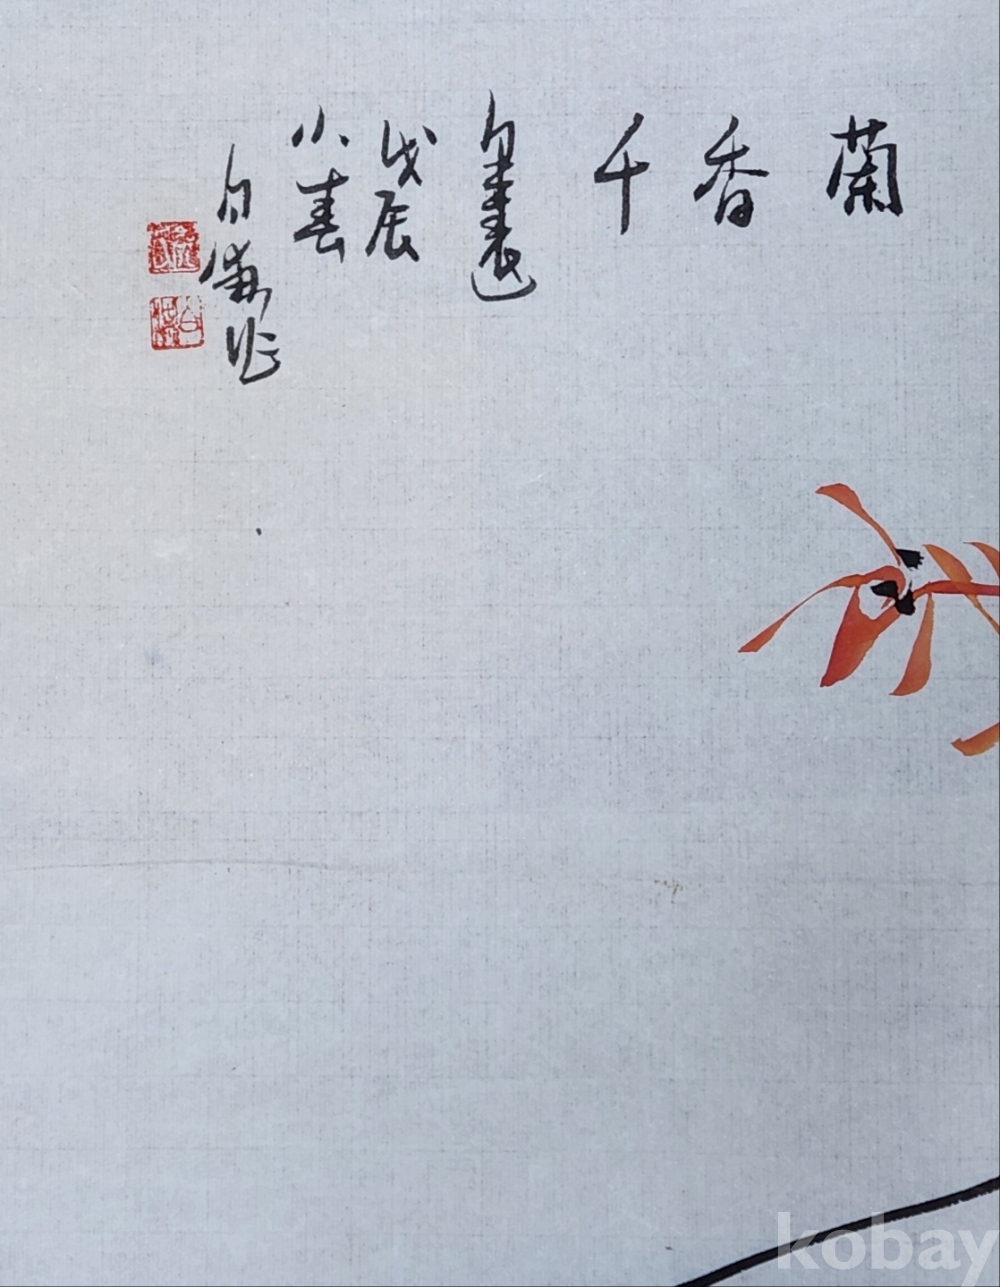 蘭
香
千
里遠
戊辰
小春
白 作
kobay